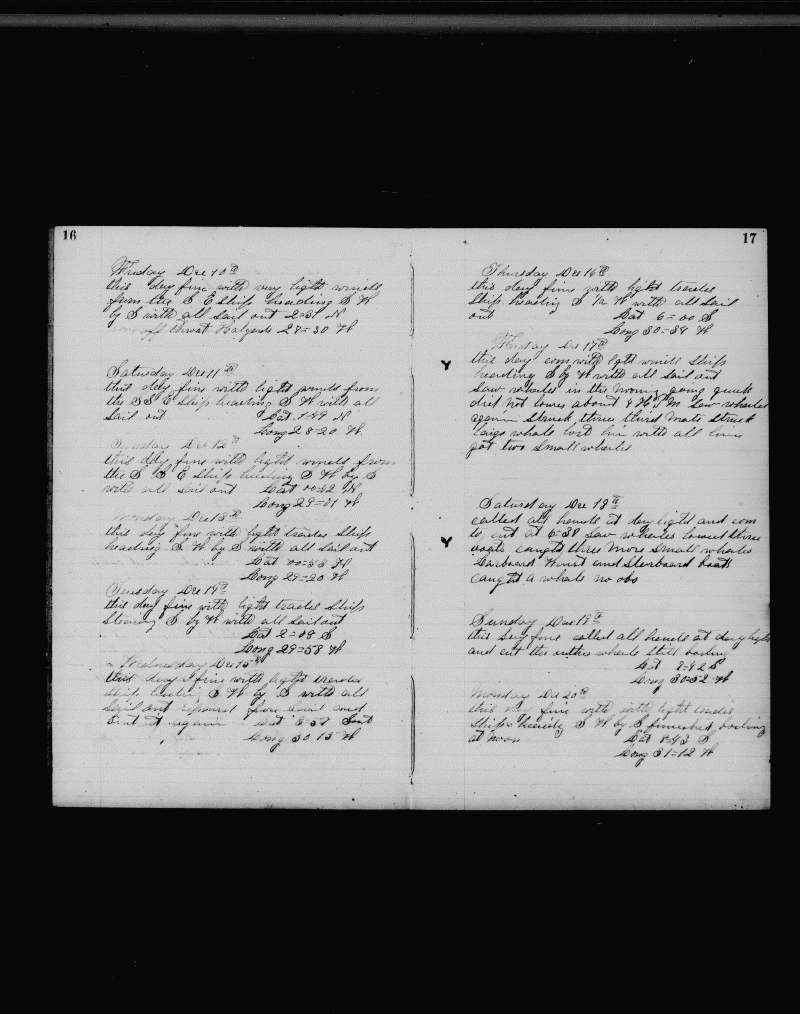 16
Friday Dec 10th
this day fine with very light winds
from the S E Ship heading S W
by S with all sail out 2=31 N
throat Halyards 28=30 W
Saturday Dec 11th
this day fine with light winds from
the SS E Ship heading S W with all
Sail out Lat 1=49 N
Long 28=20 W
Sunday Dec 12th
this day fine with light winds from
the S S E Ship heading S W by S
with all Sail out Lat 00=42 N
Long 29=01 W
Monday Dec 13th
this day fine with light trades Ship
heading S W by S with all sail out
Lat 00=58
Long 29=20 W
Tuesday Dec 14th
this day fine with light trades Ship
Stearing S by W with all sail out
Lat 2=09 S
Long 29=58 W
Wednesday Dec 15th
this day fine with light trades
Ship heading S W by S with all
Sail out fore Sail and
bent it again Lat
Long 30 15 W
17
Thursday Dec 16th
this day fine with light trades
Ship heading S 1/2 W with all Sail
out Lat 6=00 S
Long 30=34 W
Friday Dec 17th
this day com with light winds Ship
heading S by W with all sail out
Saw whales in the morning going quick
did not lower about 4 P M Saw whales
again Struck three third mate Struck
large whale lost him with all line
got two Small whales
Saturday Dec 18th
called all hands at daylight and com
to cut at 6=30 Saw whales lowered three
boats caught three more Small whales
Larboard Waist and Starboard boats
caught a whale no obs
Sunday Dec 19th
this day fine called all hands at day light
and cut the whale Still boiling
Lat 8=42 S
Long 30=52 W
Monday Dec 20th
this day fine with light trades
Ship heading S W by S finished boiling
at Noon Lat 8=43 S
Long 31=12 W